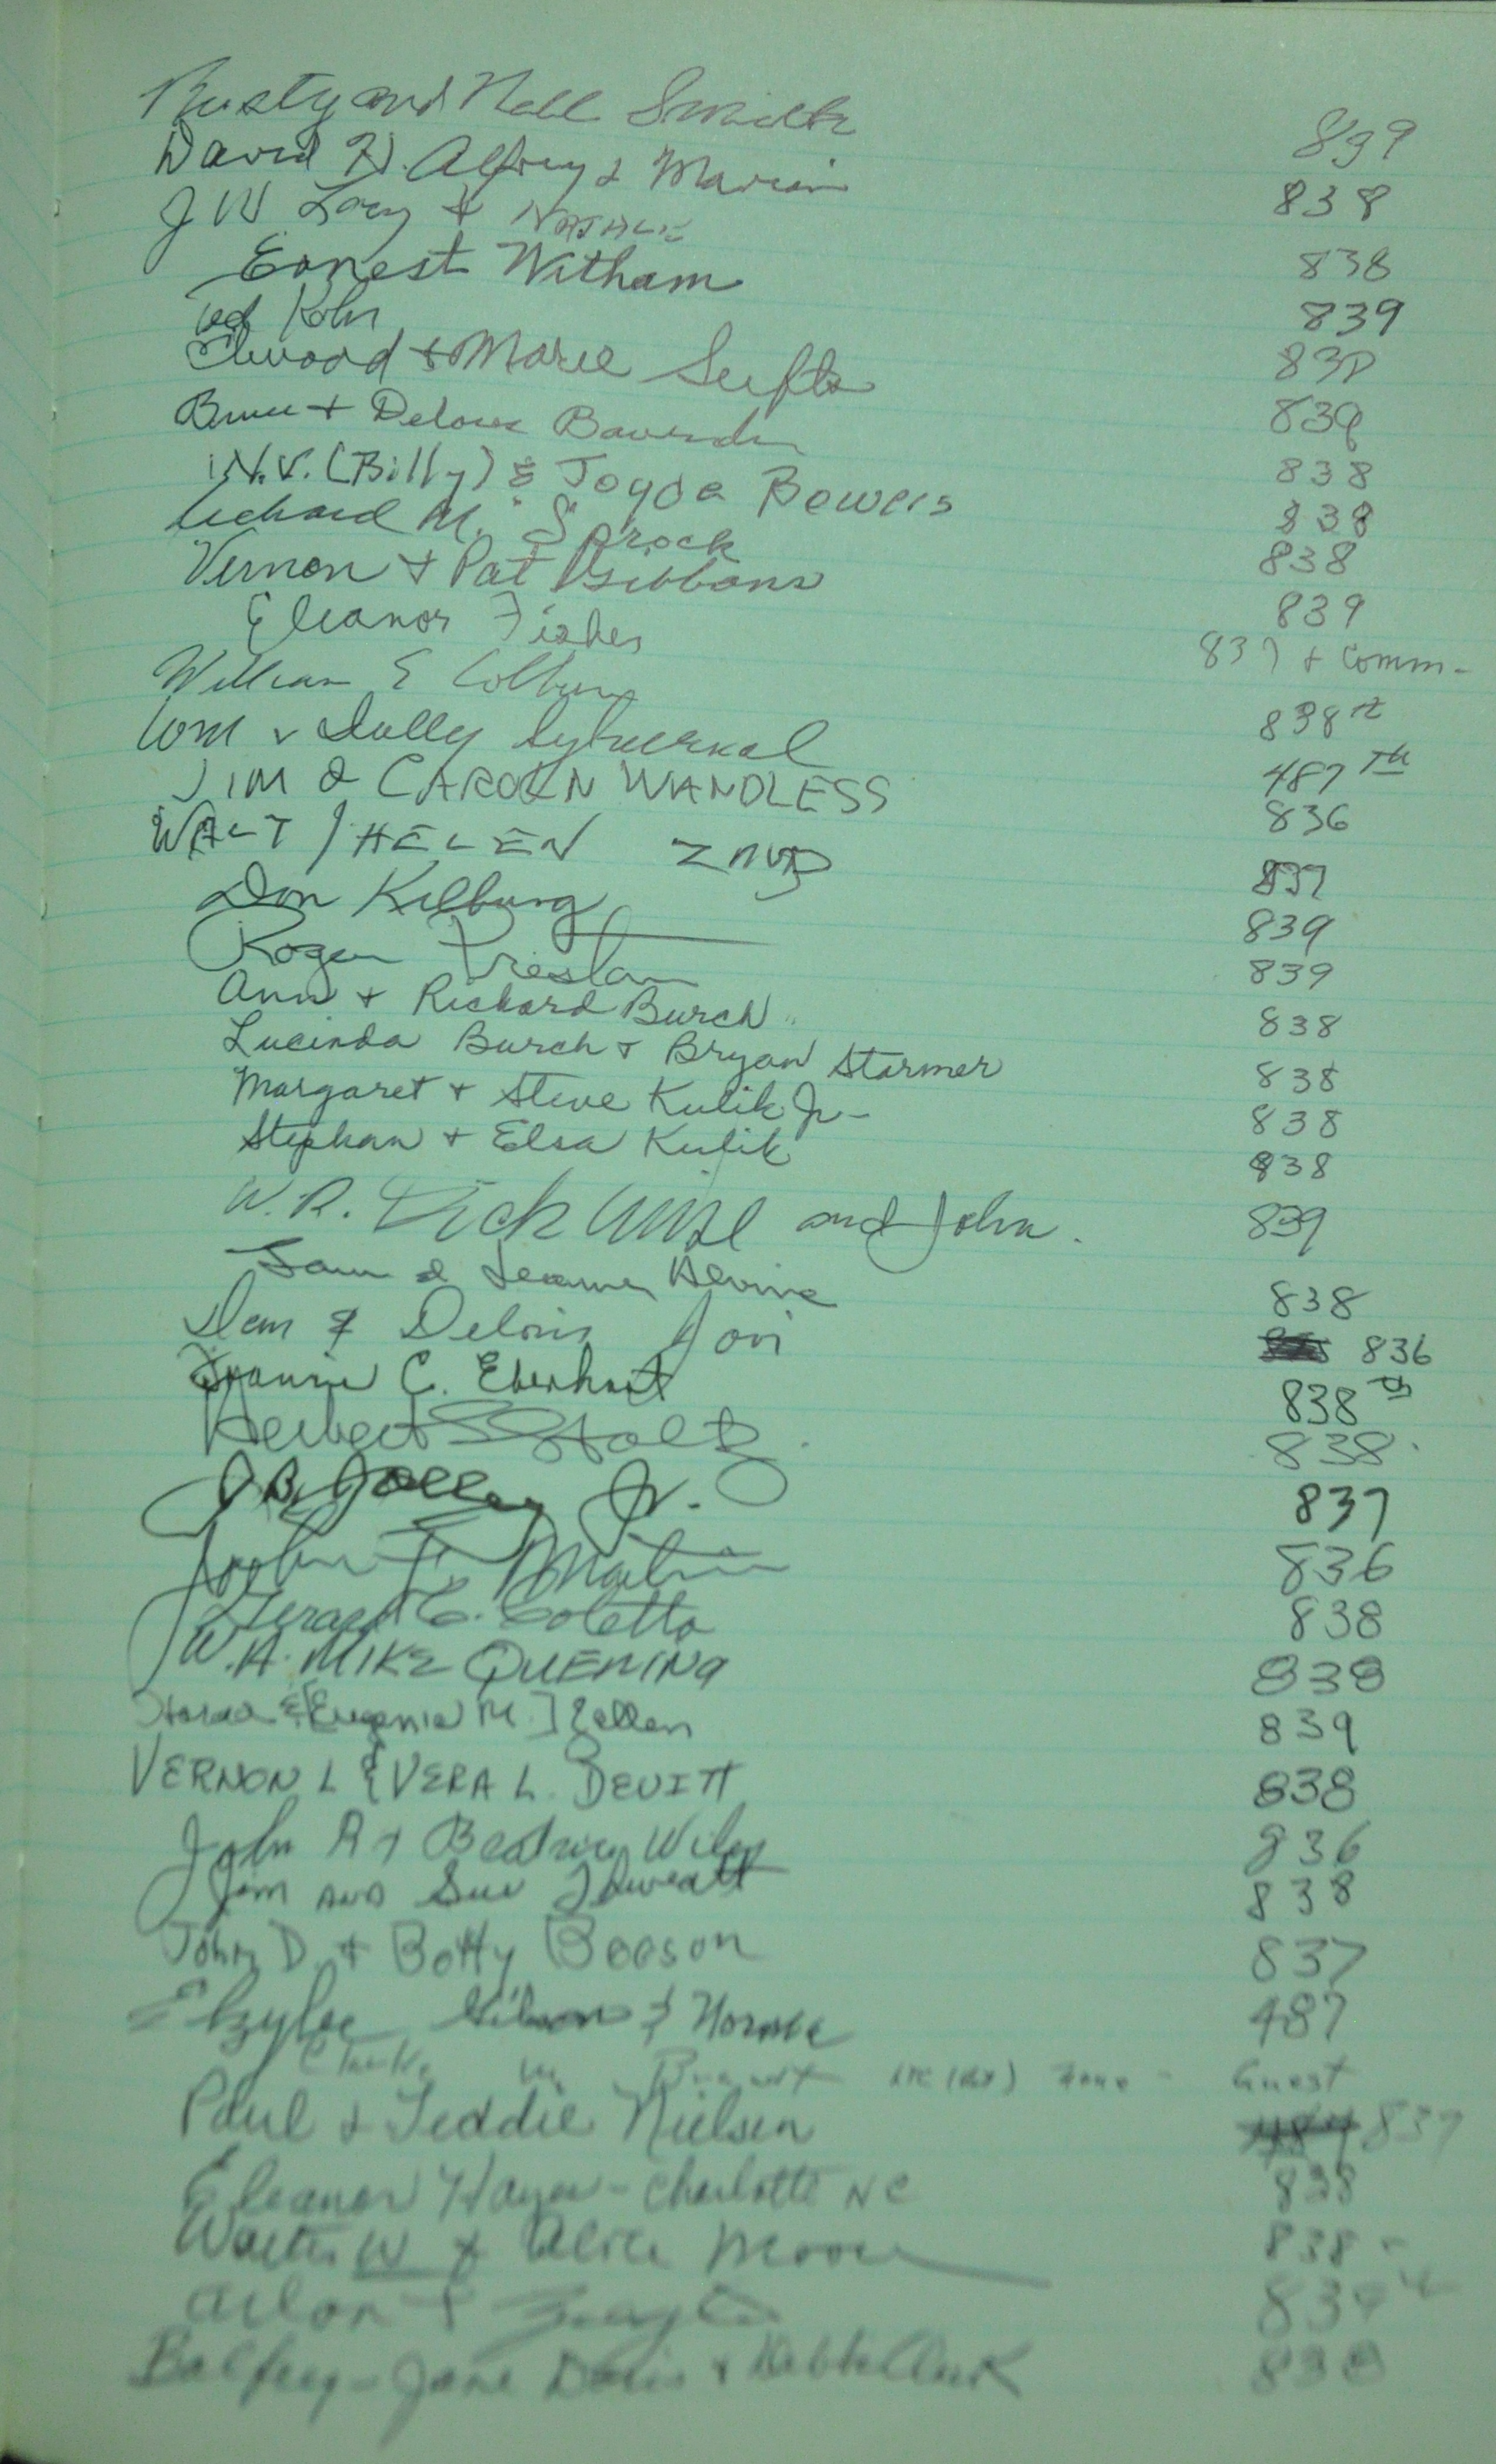 Rusty and Nell Smith 839
David H. Alfrey & Marian 838
J W Lacy & NATALIE 838
Ernest Witham 839
Ted Kohn 838
Elwood & Marie Seifts 839
Bruce + Delores 838
W.V. (Billy) & Joyce Bowers 838
Richard M. Sprock 838
Vernon + Pat Gibbons 839
Eleanor Fisher 837 + Comm-
William E 838th
Tom & Dolly 487TH
JIM & CAROLYN WANDLESS 836
WALT / HELEN 837
Don Kilburg 839
Roger Preston 839
Ann + Richard Burch 838
Lucinda Burch + Bryan Starmer 838
Margaret + Steve Kulik Jr- 838
Stephan + Elsa Kulik 838
W.R. Dick Wise and John. 839
Sam & Jeanne 838
Dem & Deloris Jovi 836
C. Eberhart 838th
Herbert Stoltz. 838.
J.B. Jolley Jr. 837
John F. Martin 836
Gerard C. Coletta 838
W.A. MIKE QUERING 838
& [Eugenia M.] Zellen 839
VERNON L & VERA L. DEVITT 838
John R + Beatrice Wiley 836
Jim AND Sue Thweatt 838
John D. + Betty Beeson 837
Gibson & Norma 487
Guest
Paul & Teddie Nielsen 837
Eleanor Hayes - Charlotte NC 838
Walter W & Alice Moore 838 -
Arlon + 839
Balfrey - Jane Davis & Debbie Clark 838